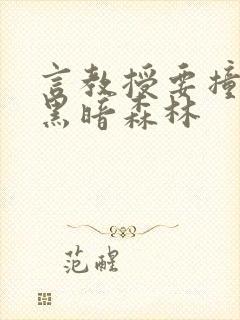 言教授要撞
黑暗森林
范醒